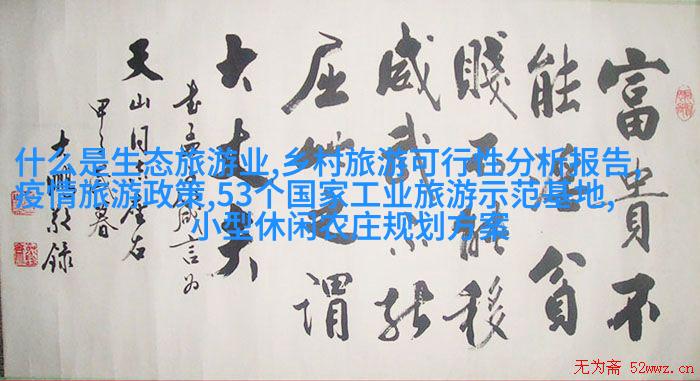 富貴不
能淫貧
賤不能移
威武不能
屈此之謂
大丈夫
天山同志座右
什么是生态旅游业,乡村旅游可行性分析报告,
疫情旅游政策,53个国家工业旅游示范基地,
小型休闲农庄规划方案
无为斋 52wwz.cn